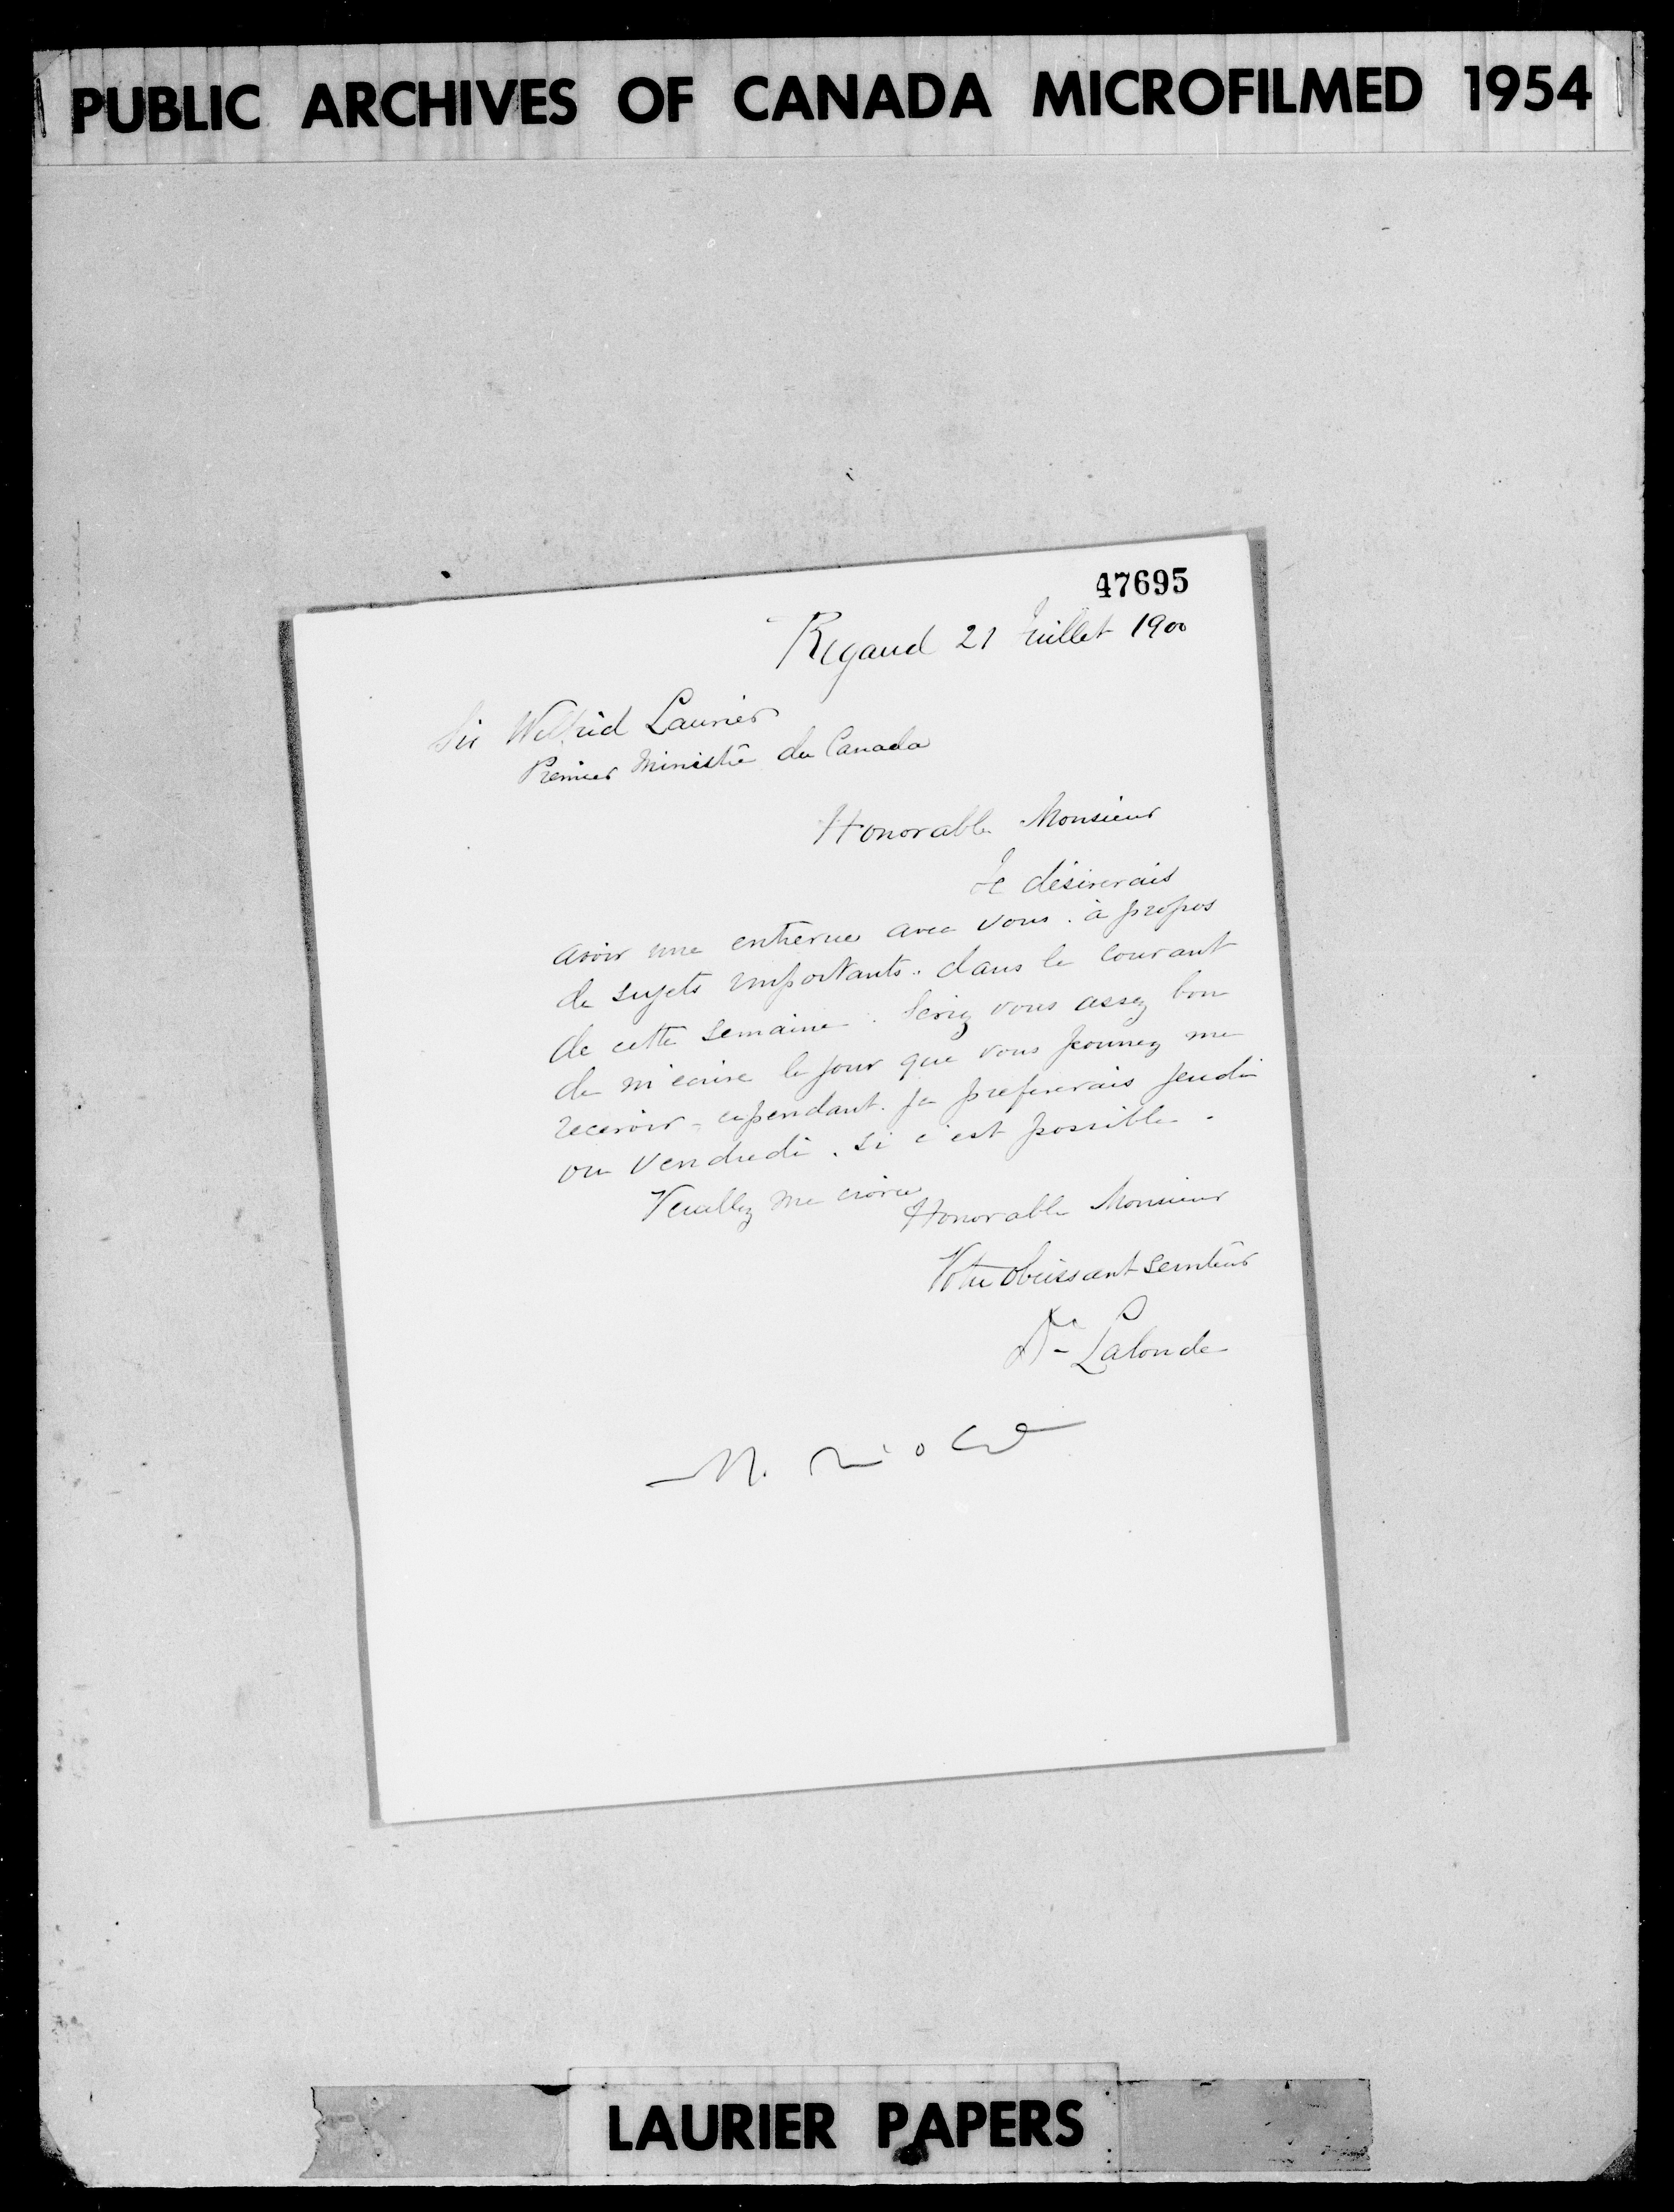 PUBLIC ARCHIVES OF CANADA MICROFILMED 1954
47695
Rigaud 21 Juillet 1900
Sir Wilfrid Laurier
Premier Ministre du Canada
Honorable Monsieur
Je désirerais
avoir une entrevue avec vous. à propos
de sujets importants. dans le courant
de cette semaine. Seriez vous assez bon
de m'ecrire le jour que vous pourrez me
recevoir - cependant. je prefererais jeudi
ou Vendredi. si c'est possible -
Veuillez me croire
Honorable Monsieur
Votre obeissant serviteur
Dr Lalonde
LAURIER PAPERS